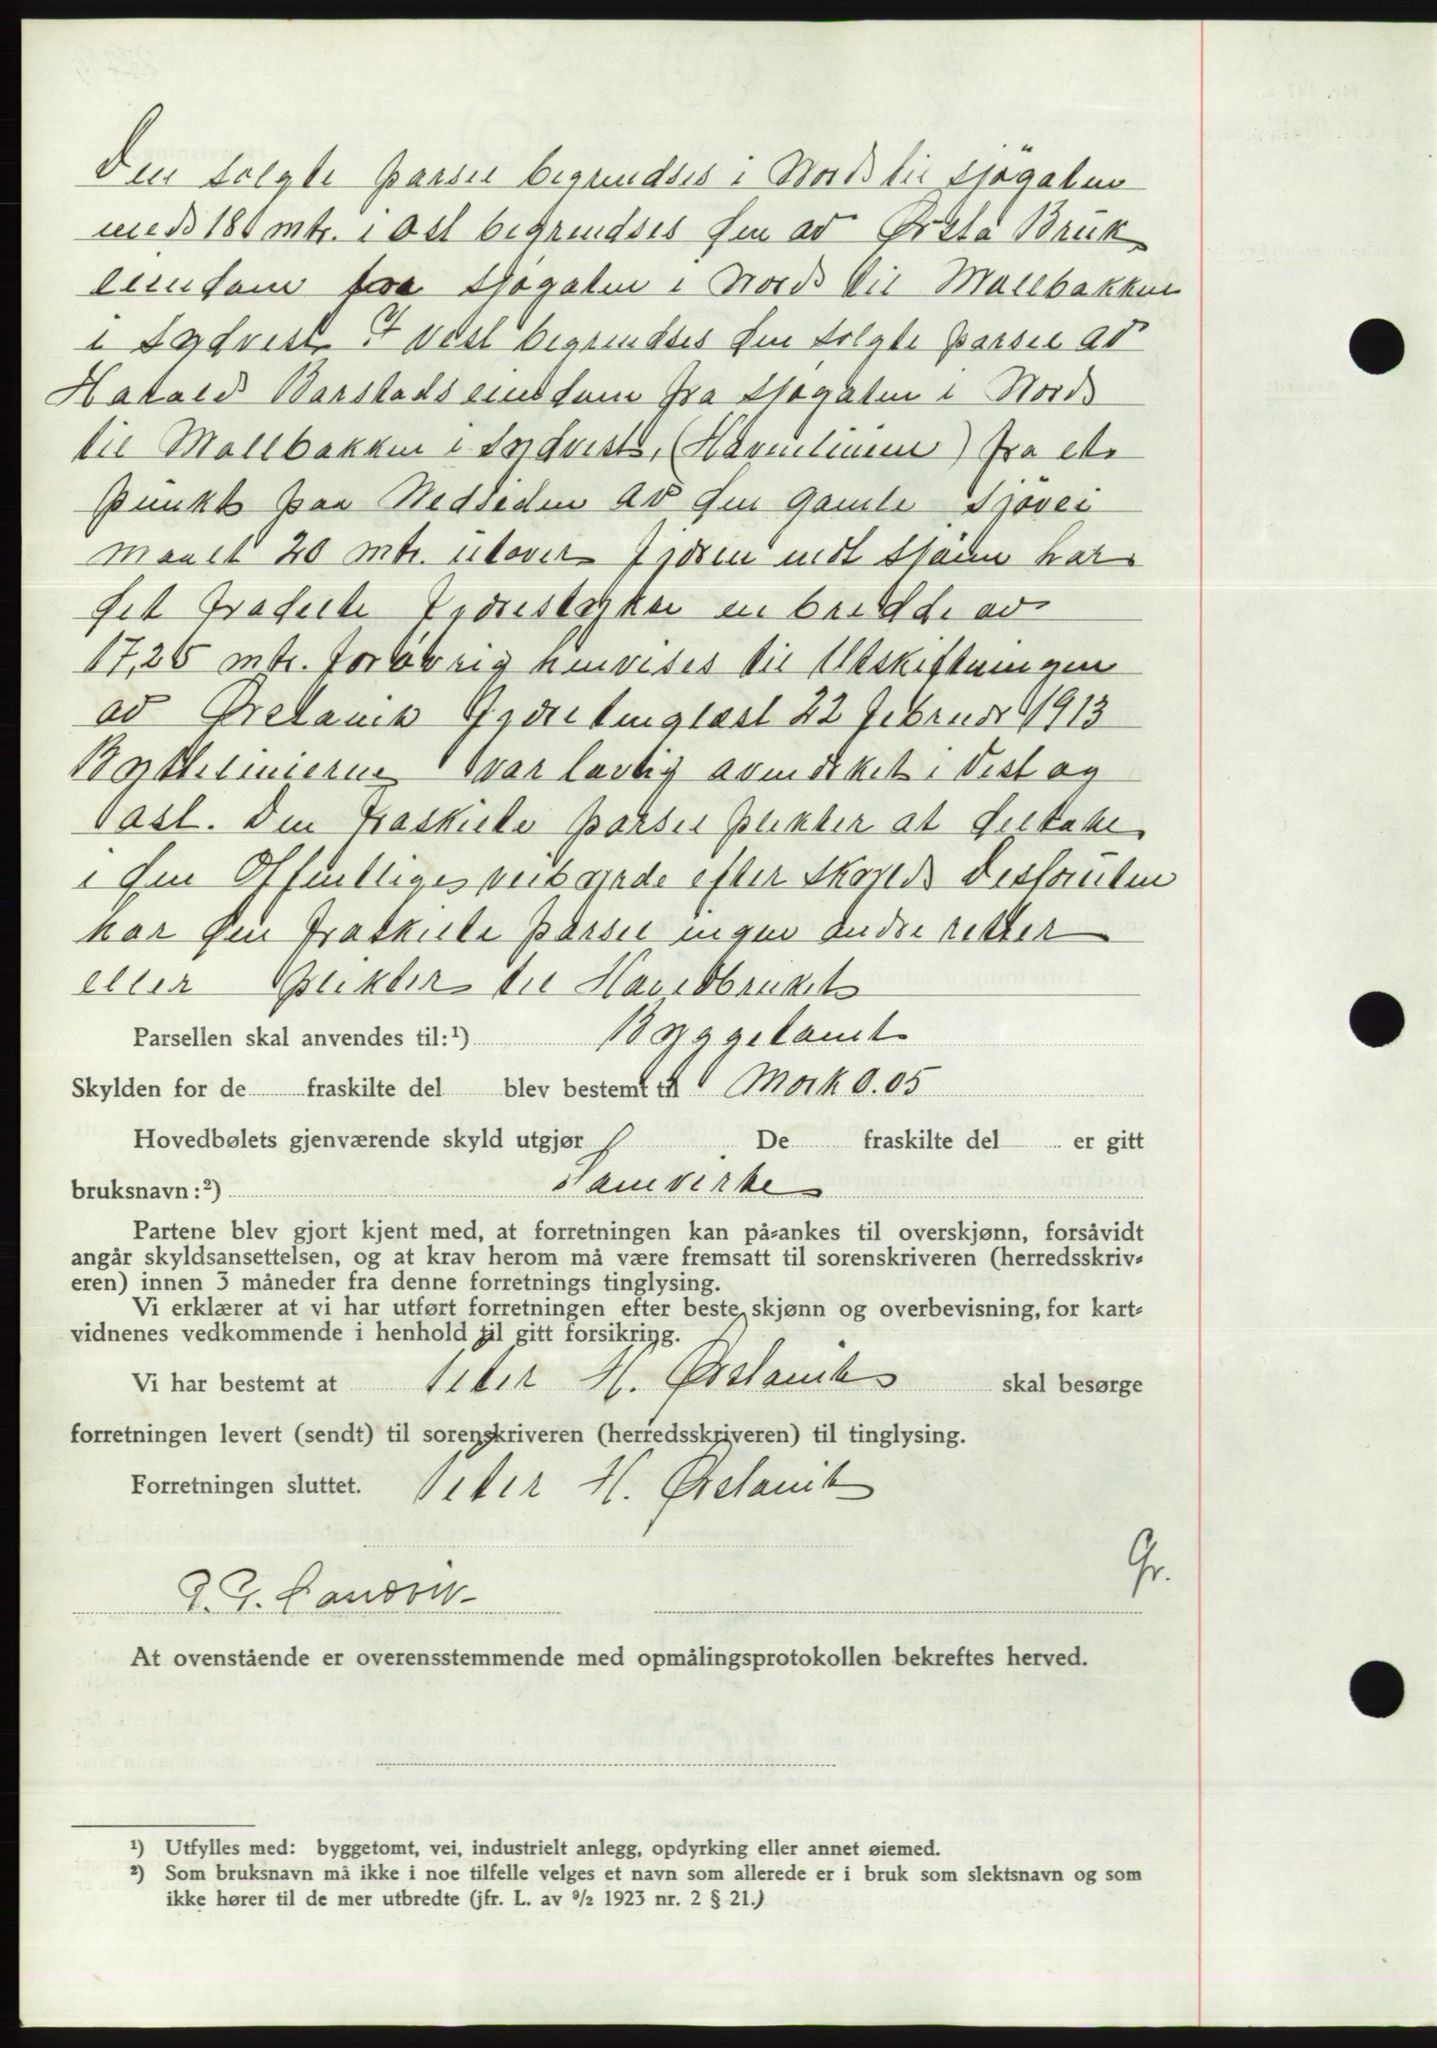 Den solgte parsel begrendses i Nord til Sjøgaten
med 180 mtr. i Ost begrendses den av Ørsta Bruk
eiendom fra Sjøgaten i Nord til Mallbakken
i Sydvest I vest begrendses den solgte parsel av
Harald Barstads eiendom fra Sjøgaten i Nord
til Mallbakken i Sydvest, (Havnelinien) fra et
punkt paa Nedsiden av den gamle Sjøvei
maalt 20 mtr. utover Fjøren mot Sjøen har
det fradelte Fjørestykke en bredde av
17,25 mtr. forøvrig henvises til Utskiftningen
av Ørstavik Fjøre tinglæst 22 Februar 1913
Byttelinierne var lovlig avmerket i Vest og
ast. Den fraskilte parsel plikter at deltake
i den Offentlige veibyrde efter Skyld Dessforuten
har den fraskilte parsel ingen andre retter
eller plikter til Hovedbruket
Parsellen skal anvendes til:¹) Byggetomt
Skylden for de fraskilte del blev bestemt til Mark 0.05
Hovedbølets gjenværende skyld utgjør De fraskilte del er gitt
bruksnavn:²) Samvirke
Partene blev gjort kjent med, at forretningen kan på-ankes til overskjønn, forsåvidt
angår skyldsansettelsen, og at krav herom må være fremsatt til sorenskriveren (herredsskriv-
eren) innen 3 måneder fra denne forretnings tinglysing.
Vi erklærer at vi har utført forretningen efter beste skjønn og overbevisning, for kart-
vidnenes vedkommende i henhold til gitt forsikring.
Vi har bestemt at Peter H. Ørstavik skal besørge
forretningen levert (sendt) til sorenskriveren (herredsskriveren) til tinglysing.
Forretningen sluttet. Peter H. Ørstavik
Gr.
P. G. Landvik
At ovenstående er overensstemmende med opmålingsprotokollen bekreftes herved.
¹) Utfylles med: byggetomt, vei, industrielt anlegg, opdyrking eller annet øiemed.
²) Som bruksnavn må ikke i noe tilfelle velges et navn som allerede er i bruk som slektsnavn og som
ikke hører til de mer utbredte (jfr. L. av ⁹/₂ 1923 nr. 2 § 21.)